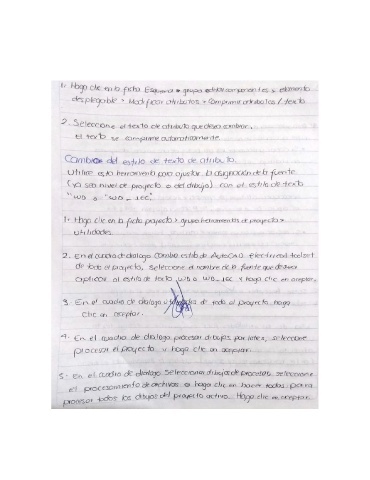 1. Haga clic en la ficha Esquema > grupo editar componentes > elemento
desplegable > Modificar atributos > Comprimir atributos / texto
2. Seleccione el texto de atributo que desea cambiar.
El texto se comprime automáticamente.
Cambio del estilo de texto de atributo.
Utilice esta herramienta para ajustar la asignación de la fuente
(ya sea nivel de proyecto o del dibujo) con el estilo de texto
"WD o "WD - IEC".
1. Haga clic en la ficha proyecto > grupo herramientas de proyecto >
Utilidades.
2. En el cuadro de dialogo Cambiar estilo de AutoCAD Electrical toolset
de todo el proyecto, seleccione el nombre de la fuente que desea
aplicar al estilo de texto WD o WD-IEC y haga clic en aceptar.
3. En el cuadro de dialogo de todo el proyecto haga
clic en aceptar.
4. En el cuadro de dialogo procesar dibujos por lotes, seleccione
procesar el proyecto y haga clic en aceptar.
5- En el cuadro de dialogo Seleccionar dibujos de procesar, seleccione
el procesamiento de archivos o haga clic en hacer todos para
procesar todos los dibujos del proyecto activo. Haga clic en aceptar.